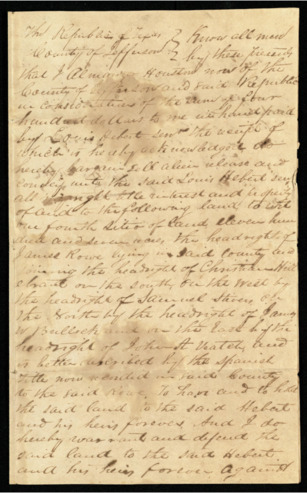 The Republic of Texas } Know all men
County of Jefferson } by these Presents
that I Almanzon Houston now of the
County of Jefferson and said Republic
in consideration of the sum of four
hundred dollars to me in hand paid
by Louis Hebert senr the receipt of
which is hereby acknowledged do
hereby sell alien release and
convey unto the said Louis Hebert senr
all right title interest and
of and to the following land to wit
one fourth of land eleven hun
dred and seven the headright of
James Rowe lying in said County and
joining the headright of Christian Hille
brant on the South, on the West by
the headright of Samuel Stivers on
the North by the headright of James
W Bullock and on the East by the
headright of John A Veatch, and
is better described by the Spanish
title now recorded in said County
to the said Rowe. To have and to hold
the said land to the said Hebert
and his heirs forever. And I do
hereby warrant and defend the
said land to the said Hebert,
and his heirs forever against